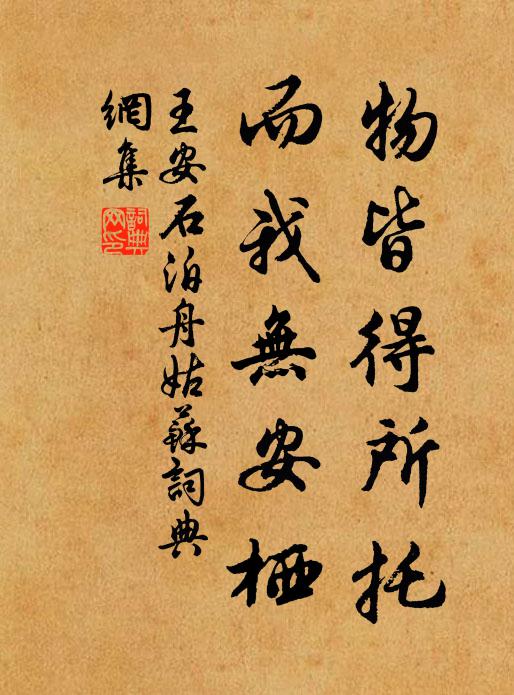 物皆得所托
而我無安栖
王安石泊舟姑蘇詞典
網集
詞典
网印